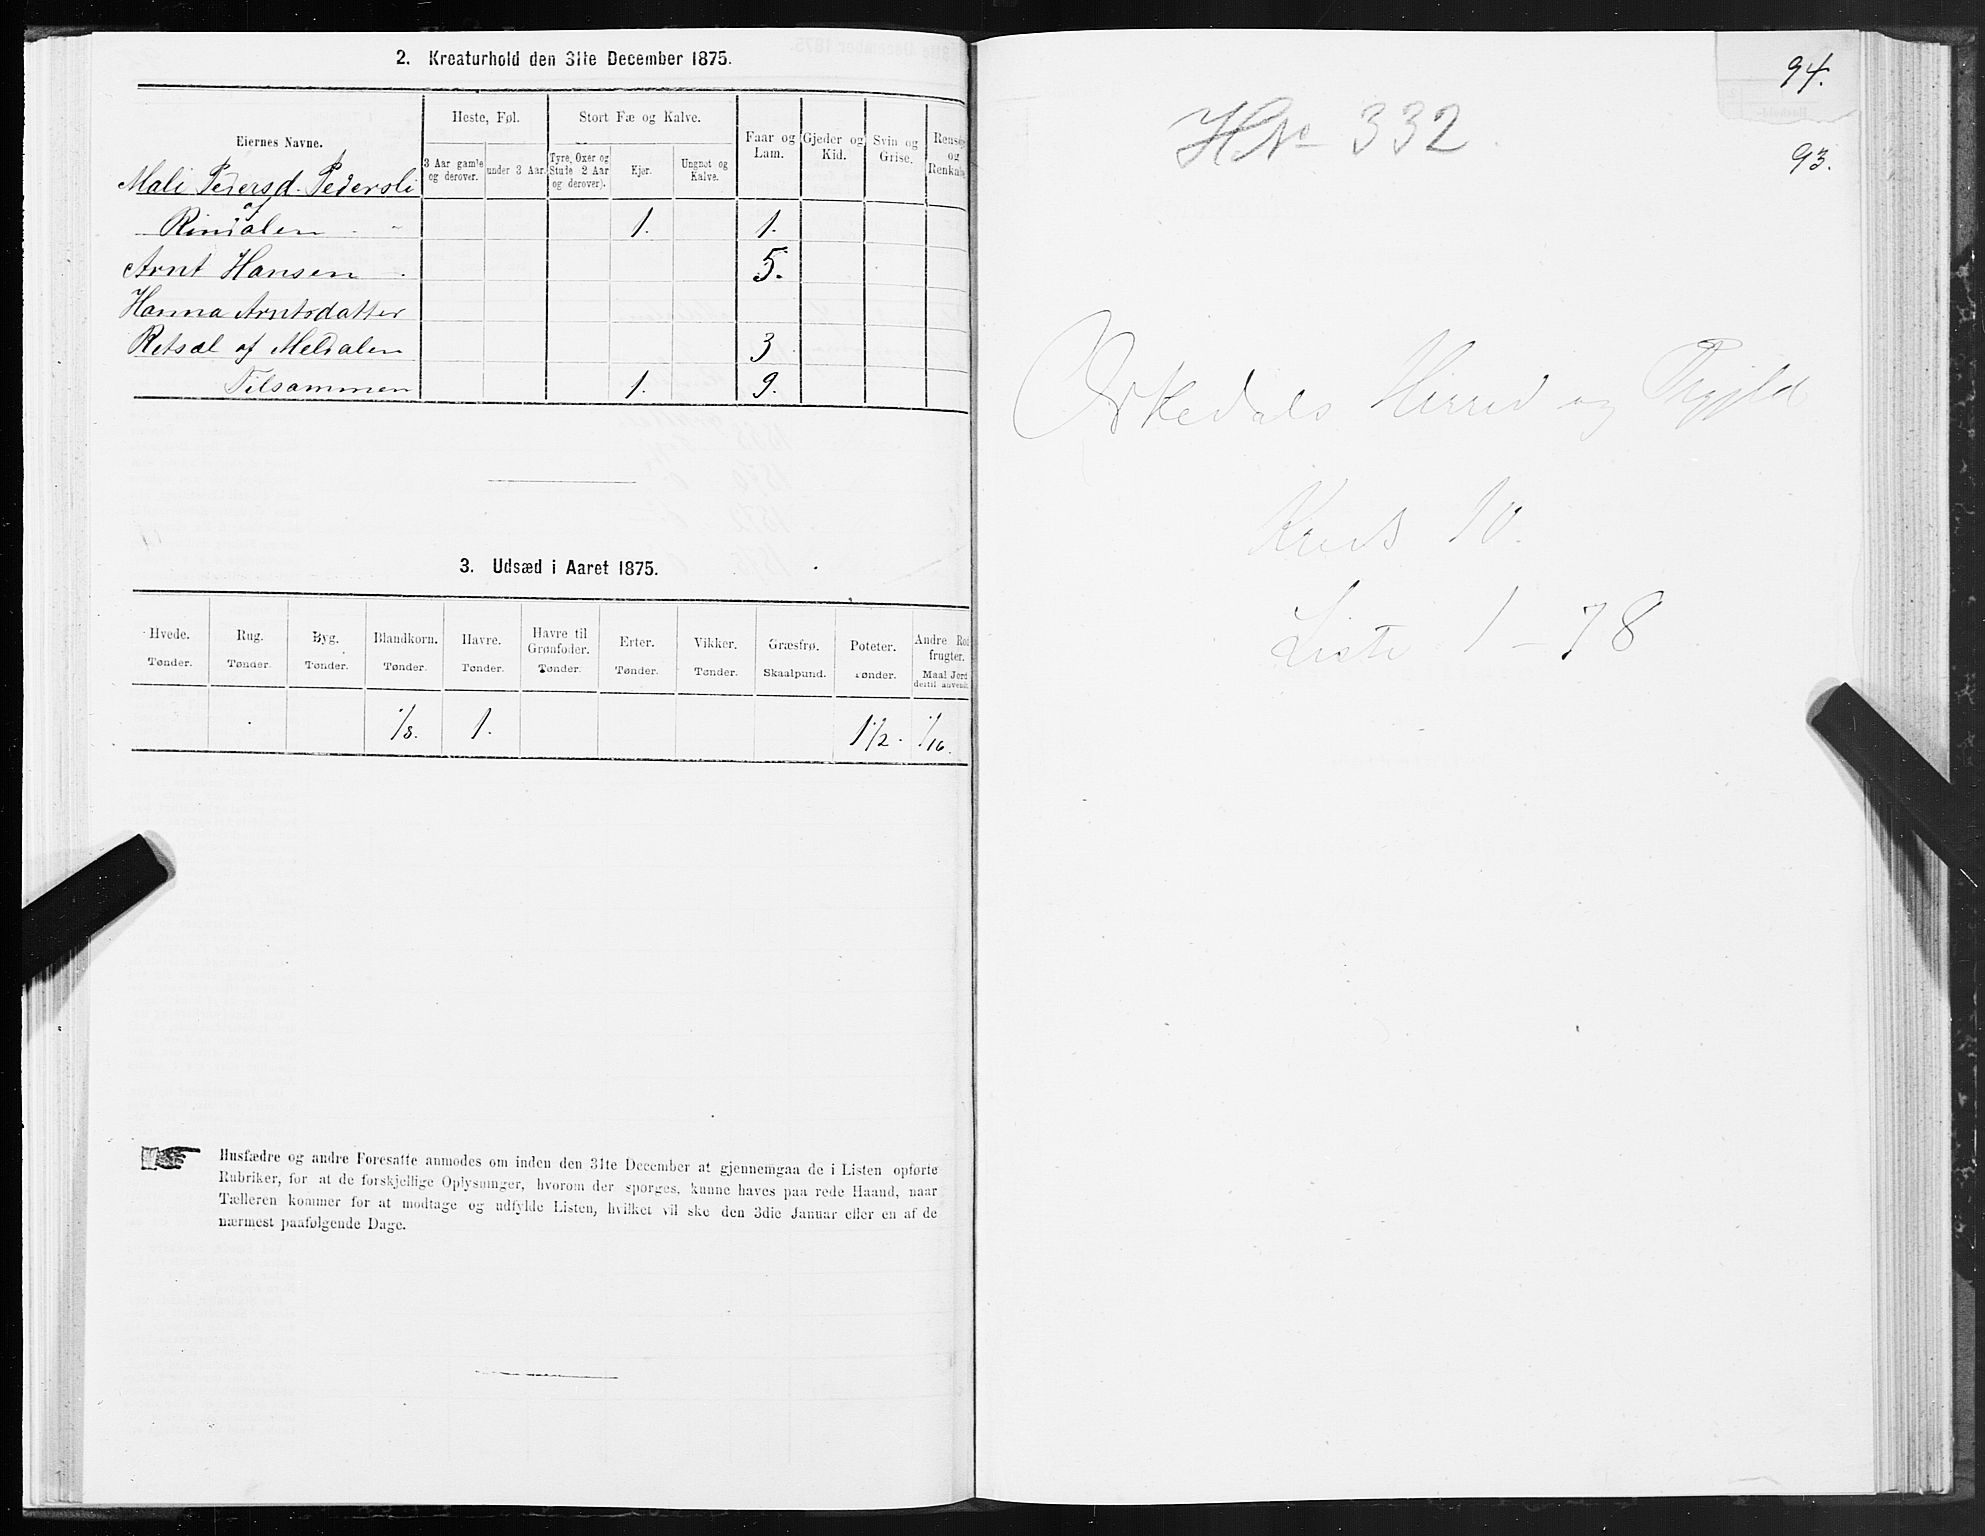 2. Kreaturhold den 31te December 1875.
Eiernes Navne.
Heste, Føl.
Stort Fæ og Kalve.
Faar og Lam.
Gjeder og Kid.
Svin og Grise.
Rensdyr og Renkalve
3 Aar gamle og derover.
under 3 Aar.
Tyre, Oxer og Stude 2 Aar og derover).
Kjør.
Ungnøt og Kalve.
Mali Pedersd. Pedersli
af
Rindalen 1. 1.
Arnt Hansen 5.
Hanna Arntsdatter
Retsæl af Meldalen 3
Tilsammen 1. 9.
3. Udsæd i Aaret 1875.
Hvede. Rug. Byg. Blandkorn. Havre. Havre til Grønfoder. Erter. Vikker. Græsfrø. Poteter. Andre Rodfrugter.
Tønder. Tønder. Tønder. Tønder. Tønder. Tønder. Tønder. Tønder. Skaalpund. Tønder. Maal Jord dertil anvendt.
1/8. 1. 1 1/2. 1/16.
Husfædre og andre Foresatte anmodes om inden den 31te December at gjennemgaa de i Listen opførte
Rubriker, for at de forskjellige Oplysninger, hvorom der spørges, kunne haves paa rede Haand, naar
Tælleren kommer for at modtage og udfylde Listen, hvilket vil ske den 3die Januar eller en af de
nærmest paafølgende Dage.
94.
HNo 332.
93.
Orkedals Herred og Prgjeld
Kreds 10.
Liste 1 - 78